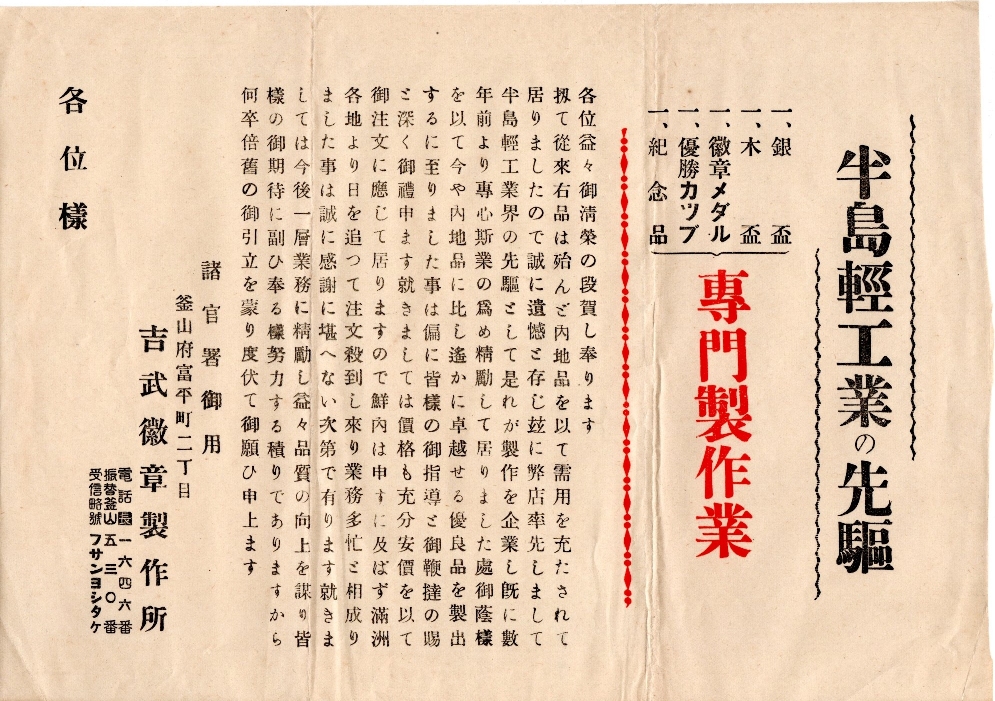 半島輕工業の先驅
一、銀盃
一、木盃
一、徽章メダル
一、優勝カツブ
一、紀念品
專門製作業
各位益々御淸榮の段賀し奉ります
扨て從來右品は殆んど內地品を以て需用を充たされて
居りましたので誠に遺憾と存じ玆に弊店率先しまして
半島輕工業界の先驅として是れが製作を企業し旣に數
年前より專心斯業の爲め精勵して居りました處御蔭樣
を以て今や內地品に比し遙かに卓越せる優良品を製出
するに至りました事は偏に皆樣の御指導と御鞭撻の賜
と深く御禮申ます就きましては價格も充分安價を以て
御注文に應じて居りますので鮮內は申すに及ばず滿洲
各地より日を追つて注文殺到し來り業務多忙と相成り
ました事は誠に感謝に堪へない次第で有ります就きま
しては今後一層業務に精勵し益々品質の向上を謀り皆
樣の御期待に副ひ奉る樣努力する積りでありますから
何卒倍舊の御引立を蒙り度伏て御願ひ申上ます
諸官署御用
釜山府富平町二丁目
吉武徽章製作所
電話長一六四六番
振替釜山五三〇番
受信略號フサンヨシタケ
各位樣